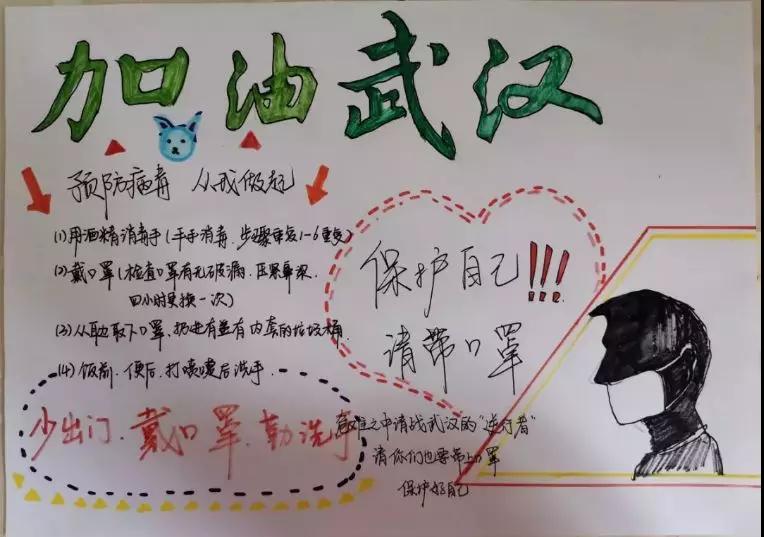 加油武汉
预防病毒 从我做起
(1)用酒精消毒手(干手消毒.步骤重复1-6重复)
(2)戴口罩(检查口罩有无破漏.压紧鼻梁.
四小时更换一次)
(3)从耳取下口罩、扔进有盖有内套的垃圾桶.
(4)饭前.便后.打喷嚏后洗手.
少出门.戴口罩.勤洗手
保护自己!!!
请带口罩
危难之中请战武汉的"逆行者"
请你们也要带上口罩
保护好自己